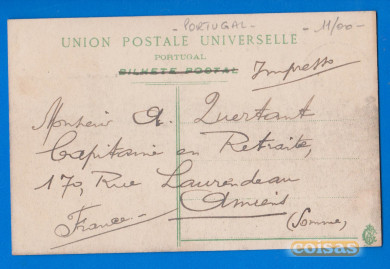 - PORTUGAL -
- 11/00 -
UNION POSTALE UNIVERSELLE
PORTUGAL
BILHETE POSTAL
Impresso
Monsieur A. Quertant
Capitaine en Retraite,
170, Rue Laurendeau
Amiens
France
(Somme)
coisas